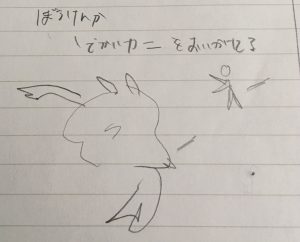 ぼうけんか
でかいカニをおいかける